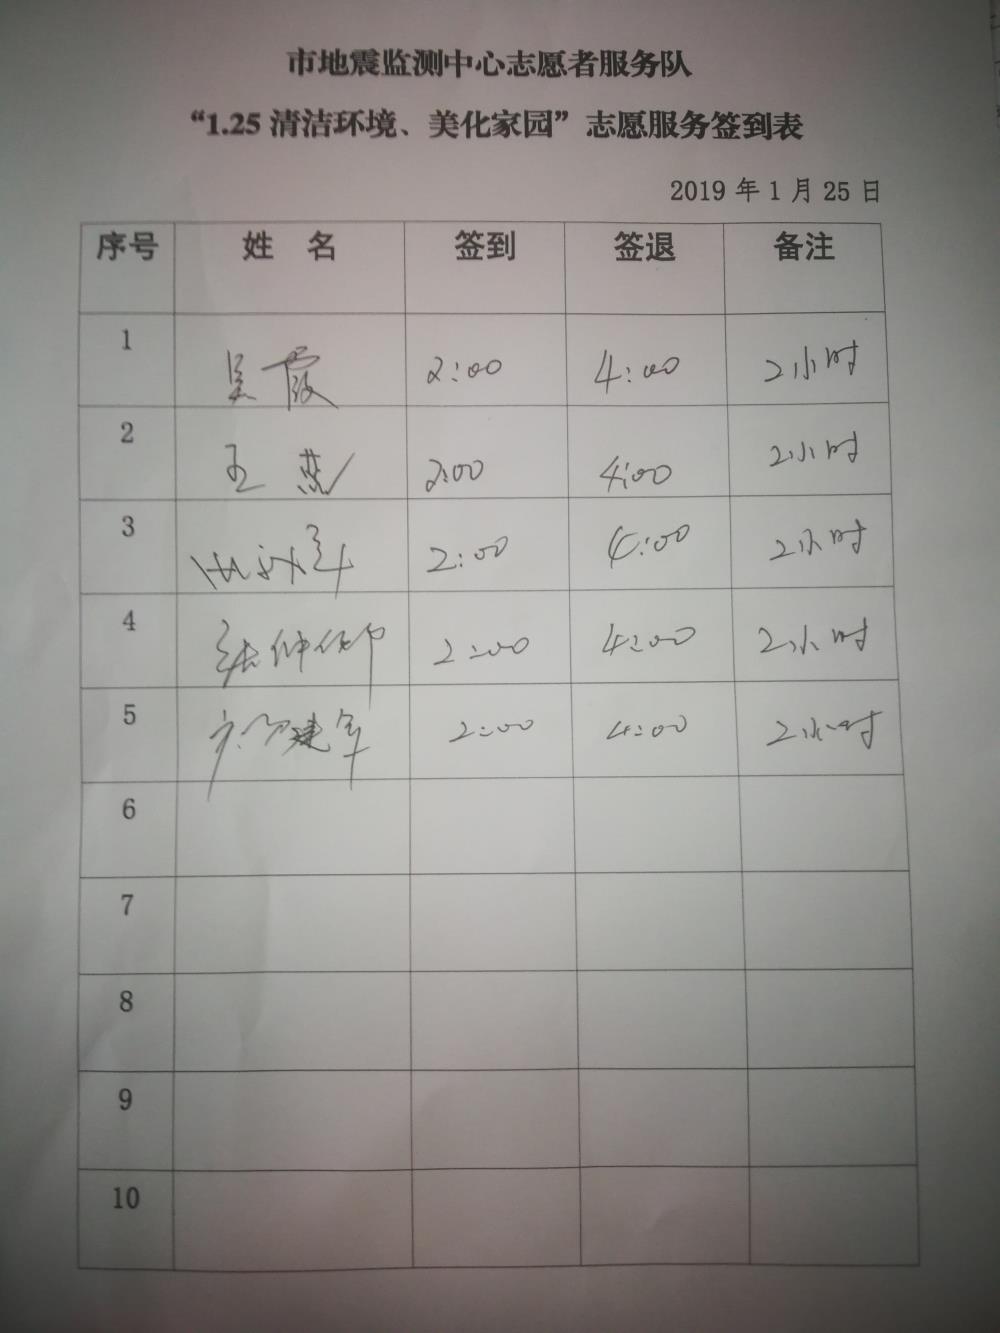 市地震监测中心志愿者服务队
“1.25 清洁环境、美化家园”志愿服务签到表
2019 年 1 月 25 日
序号 姓 名 签到 签退 备注
1 吴霞 2:00 4:00 2小时
2 王燕 2:00 4:00 2小时
3 2:00 4:00 2小时
4 张仲 2:00 4:00 2小时
5 建军 2:00 4:00 2小时
6
7
8
9
10